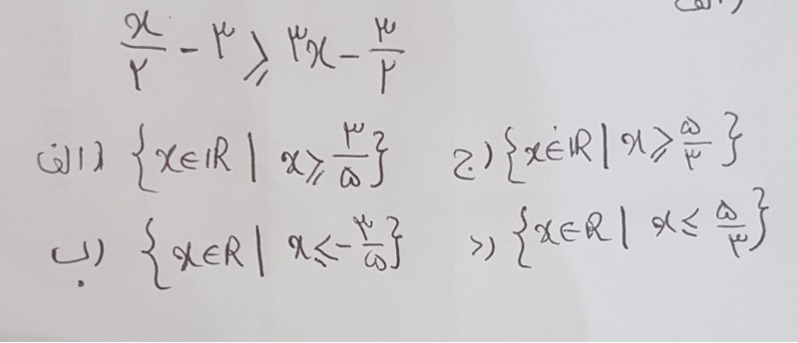 x/۲ - ۳ ≥ ۳x - ۳/۲
الف) {x∈IR | x ≥ ۳/۵}
ج) {x∈IR | x ≥ ۵/۳}
ب) {x∈R | x ≤ -۳/۵}
د) {x∈R | x ≤ ۵/۳}